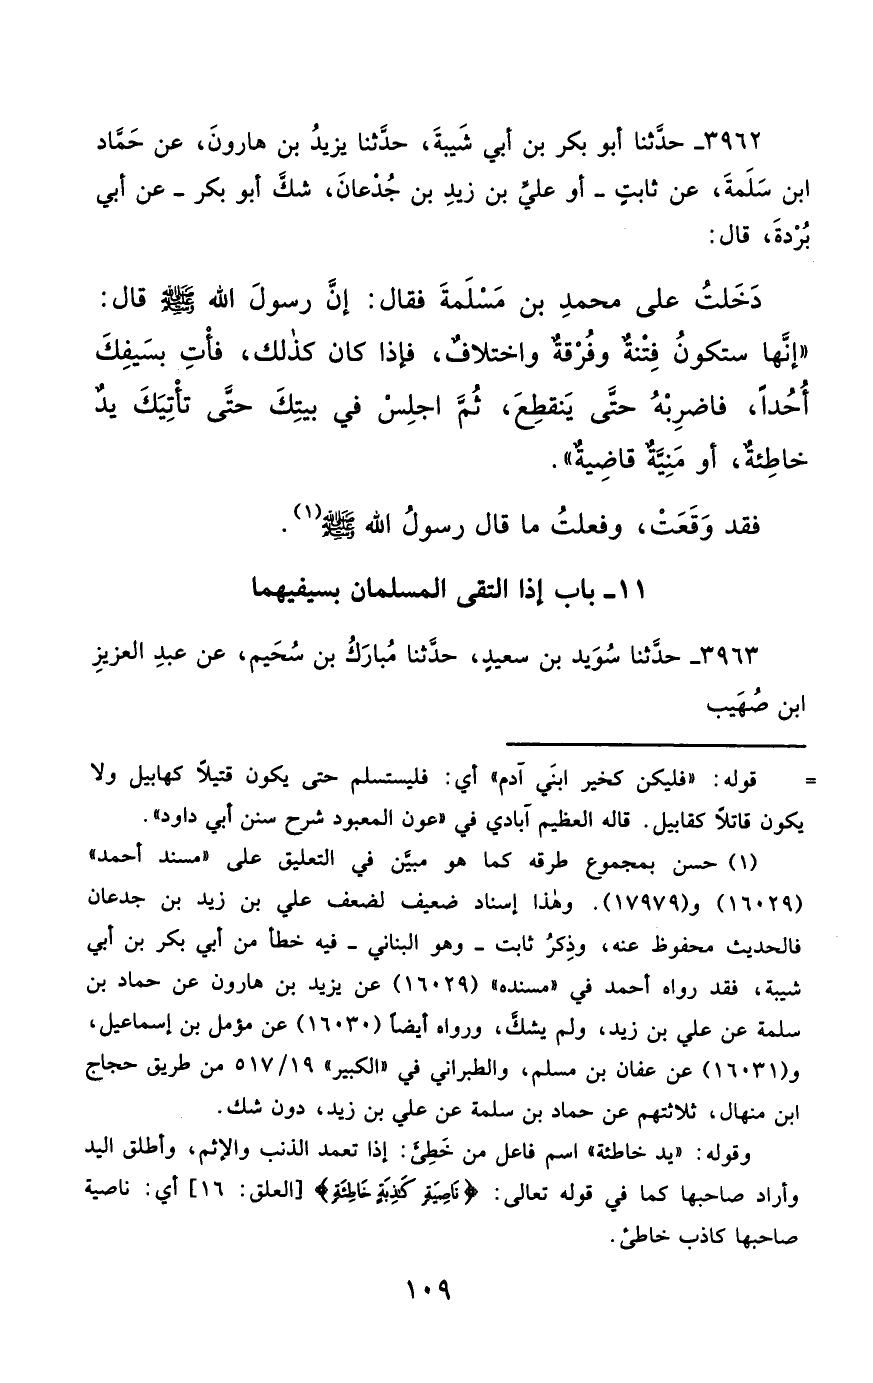 ٣٩٦٢ـ حدَّثنا أبو بكر بن أبي شَيبةَ، حدَّثنا يزيدُ بن هارونَ، عن حَمَّاد
ابن سَلَمةَ، عن ثابتٍ ـ أو عليِّ بن زيدِ بن جُدْعانَ، شكَّ أبو بكر ـ عن أبي
بُرْدةَ، قال:
دَخَلتُ على محمدِ بن مَسْلَمةَ فقال: إنَّ رسولَ الله ﷺ قال:
«إنَّها ستكونُ فِتْنةٌ وفُرْقةٌ واختلافٌ، فإذا كان كذٰلك، فأْتِ بسَيفِكَ
أُحُداً، فاضرِبْهُ حتَّى يَنقطِعَ، ثُمَّ اجلِسْ في بيتِكَ حتَّى تأْتِيَكَ يدٌ
خاطِئةٌ، أو مَنِيَّةٌ قاضِيةٌ».
فقد وَقَعَتْ، وفعلتُ ما قال رسولُ الله ﷺ(١).
١١ـ باب إذا التقى المسلمان بسيفيهما
٣٩٦٣ـ حدَّثنا سُوَيد بن سعيدٍ، حدَّثنا مُبارَكُ بن سُحَيم، عن عبدِ العزيزِ
ابن صُهَيب
= قوله: «فليكن كخير ابنَي آدم» أي: فليستسلم حتى يكون قتيلاً كهابيل ولا
يكون قاتلاً كقابيل. قاله العظيم آبادي في «عون المعبود شرح سنن أبي داود».
(١) حسن بمجموع طرقه كما هو مبيَّن في التعليق على «مسند أحمد»
(١٦٠٢٩) و(١٧٩٧٩). وهٰذا إسناد ضعيف لضعف علي بن زيد بن جدعان
فالحديث محفوظ عنه، وذِكرُ ثابت ـ وهو البناني ـ فيه خطأ من أبي بكر بن أبي
شيبة، فقد رواه أحمد في «مسنده» (١٦٠٢٩) عن يزيد بن هارون عن حماد بن
سلمة عن علي بن زيد، ولم يشكَّ، ورواه أيضاً (١٦٠٣٠) عن مؤمل بن إسماعيل،
و(١٦٠٣١) عن عفان بن مسلم، والطبراني في «الكبير» ١٩/ ٥١٧ من طريق حجاج
ابن منهال، ثلاثتهم عن حماد بن سلمة عن علي بن زيد، دون شك.
وقوله: «يد خاطئة» اسم فاعل من خَطِئَ: إذا تعمد الذنب والإثم، وأطلق اليد
وأراد صاحبها كما في قوله تعالى: ﴿نَاصِيَةٍ كَٰذِبَةٍ خَاطِئَةٍ﴾ [العلق: ١٦] أي: ناصية
صاحبها كاذب خاطئ.
١٠٩